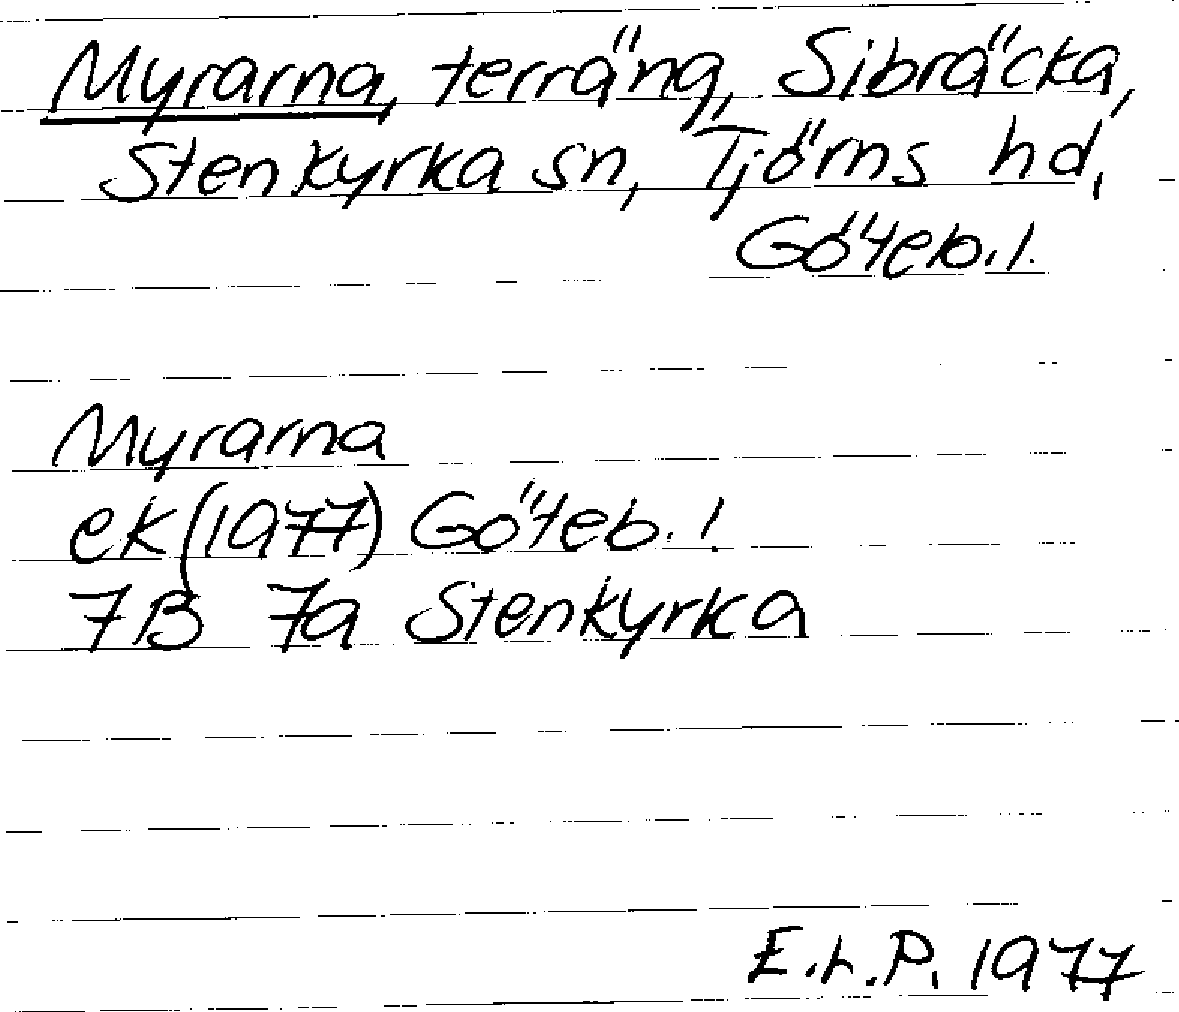 Myrarna, terräng, Sibräcka,
Stenkyrka sn, Tjörns hd,
Göteb. l.
Myrarna
ek (1977) Göteb. l.
7B 7a Stenkyrka
E.L.P. 1977